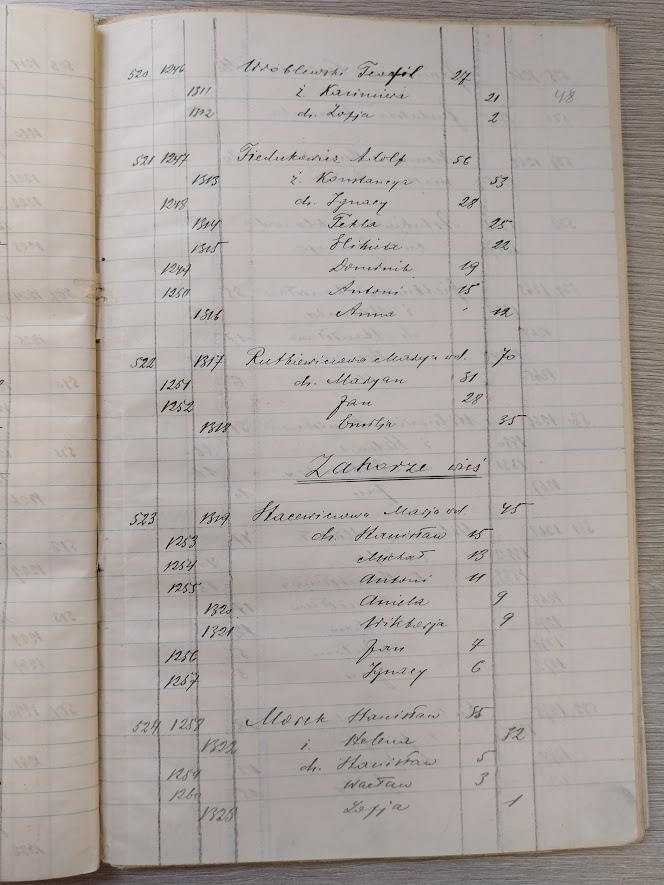 520. 1246 Wróblewski Teofil 27
1311 ż. Kazimiera 21
48
1312 dz. Zofja 2
521 1247 Fiedukowicz Adolf 56
1313 ż. Konstancya 53
1248 dz. Ignacy 28
1314 Tekla 25
1315 Elżbieta 22
1249 Dominik 19
1250 Antoni 15
1316 Anna 12
522 1317 Rutkiewiczowa Marya wd. 70
1251 dz. Maryan 31
1252 Jan 28
1318 Emilja 35
Zakorze wieś
523 1319 Stacewiczowa Marja wd. 45
1253 dz. Stanisław 15
1254 Michał 13
1255 Antoni 11
1320 Aniela 9
1321 Wiktorja 9
1256 Jan 7
1257 Ignacy 6
524 1258 Morek Stanisław 35
1322 ż. Helena 32
1259 dz. Stanisław 5
1260 Wacław 3
1323 Zofja 1